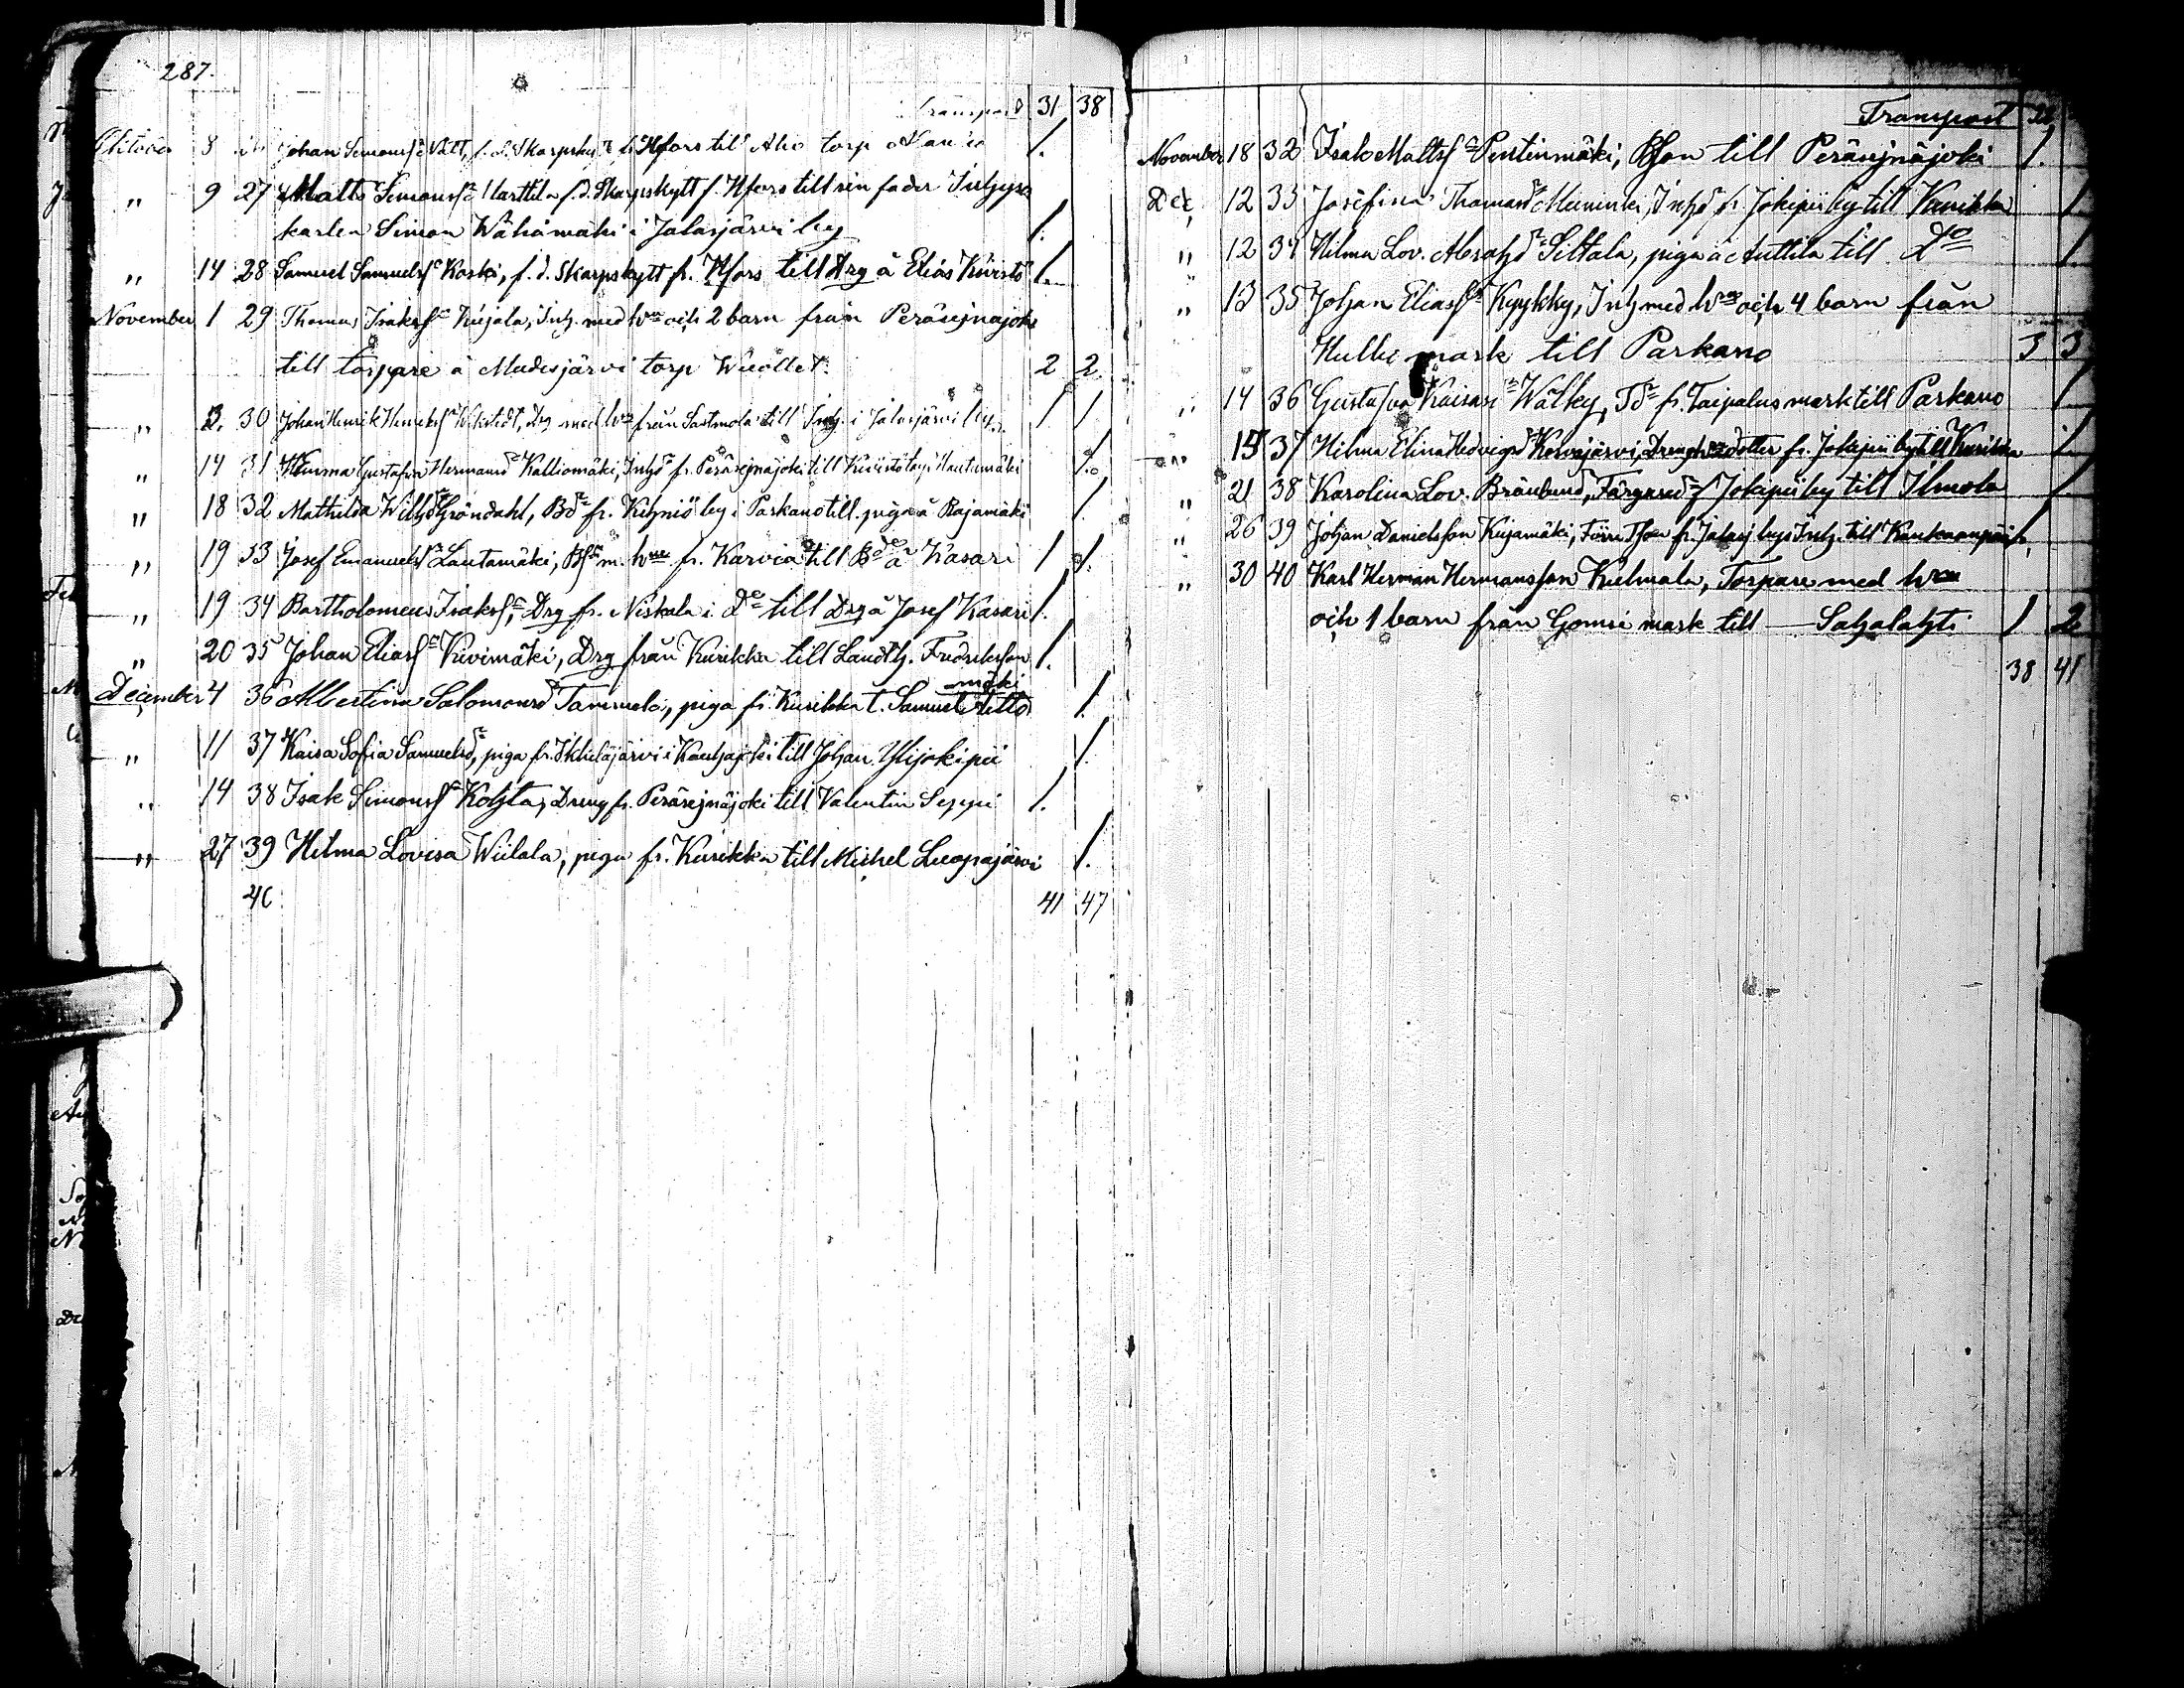 287.
Transport 31 38
Oktober 8 Johan Simonss. f. d. Skarpskytt fr. Hfors till Aho torp 1.
" 9 27 Matts Simonss. Harttila f. d. Skarpskytt f. Hfors till sin fader Inhyses
karlen Simon Wähämäki i Jalasjärvi by 1.
" 14 28 Samuel Samuelss. Koski, f. d. Skarpskytt fr. Hfors till Drg å Elias Kiiristö 1.
November 1 29 Thomas Isakss. Kujala, Inh. med h:u och 2 barn från Peräsejnäjoki
till torppare å Mudesjärvi torp 2 2
" 3. 30 Johan Henrik Henrikss. Drg med h:u från Sastmola till Inh. i Jalasjärvi by 1 1
" 14 31 Gustafva Hermansd. Kalliomäki, Inhd. fr. Peräsejnäjoki till Hautamäki 1.
" 18 32 Mathilda Willd. Gröndahl, Bd. fr. Kihniö by i Parkano till piga å Rajamäki 1
" 19 33 Josef Emanuelss. Lautamäki, Bs. m. h:u fr. Karvia till Bde å Kasari 1 1.
" 19 34 Bartholomeus Isakss., Drg fr. Niskala i Do till Drg å Josef Kasari 1.
" 20 35 Johan Eliass. Kivimäki, Drg från Kurikka till Landth. Fredriksson 1.
mäki
December 4 36 Albertina Salomonsd. Tammela, piga fr. Kurikka t. Samuel 1.
" 11 37 Kaisa Sofia Samuelsd., piga fr. Ikkeläjärvi i Kauhajoki till Johan Ylijokipii 1.
" 14 38 Isak Simonss. Kohta, Dreng fr. Peräsejnäjoki till Valentin Seppi 1.
" 27 39 Hilma Lovisa Wiilala, piga fr. Kurikka till Michel Luopajärvi 1.
40 41 47
Transport
November 18 32 Isak Mattss. Pentinmäki, Bson till Peräsejnäjoki 1.
Dec, 12 33 Josefina Thomasd. Inhd. fr. Jokipii by till Kurikka 1
" 12 34 Hilma Lov. Abrahd. Siltala, piga å Anttila till Do 1.
" 13 35 Johan Eliass. Kyykky, Inh med h:u och 4 barn från
mark till Parkano 3 3
" 14 36 Gustafva Kaisasd. Wälky, Td. fr. Taipalus mark till Parkano 1
" 15 37 Hilma Elina Hedvigsd. Koivujärvi, Dreng dotter fr. Jokipii by till Kurikka 1.
" 21 38 Karolina Lov. Bränlund, Färgared. f. Jokipii by till Ilmola 1
" 26 39 Johan Danielsson Kujamäki, fr. Jalasj. bys Inh. till Kankaanpää 1.
" 30 40 Karl Herman Hermansson Kulmala, Torpare med h:u
och 1 barn från mark till — Sahalahti 1 2
38 41